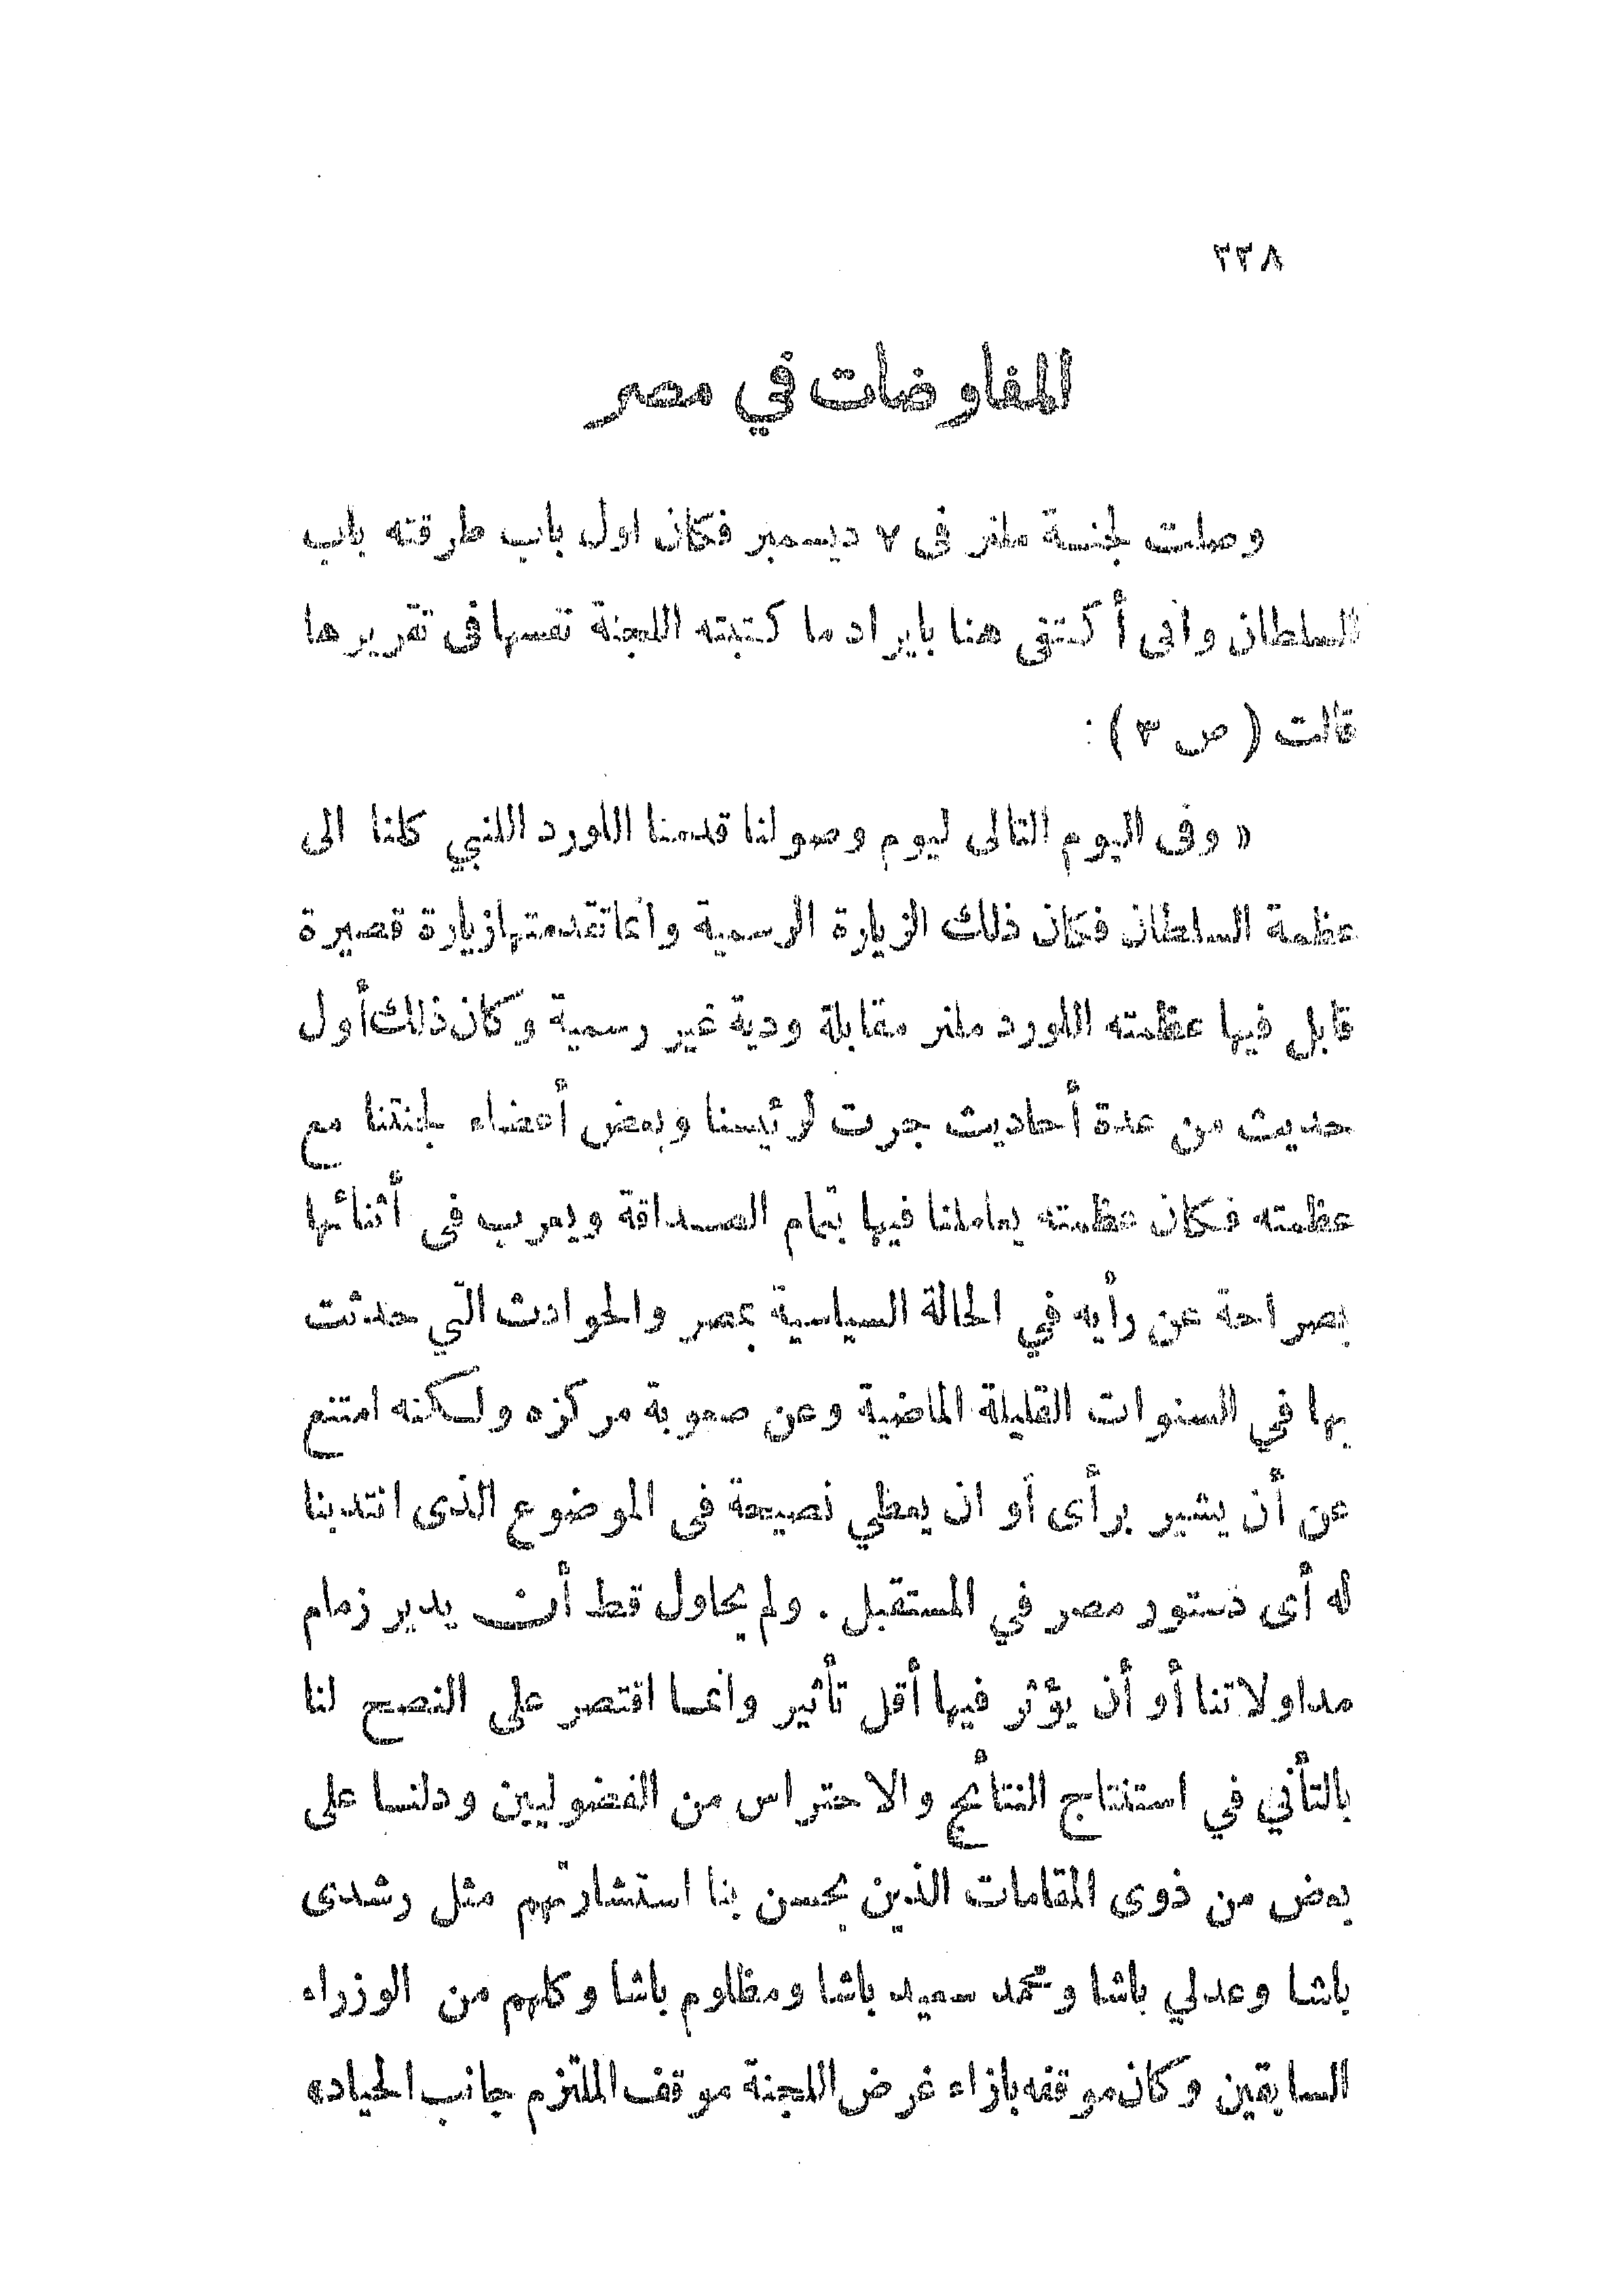 ٢٣٨
المفاوضات في مصر
وصلت لجنة ملنر فى ٧ ديسمبر فكان اول باب طرقته باب
السلطان وانى أكتفى هنا بايراد ما كتبته اللجنة نفسها فى تقريرها
قالت ( ص ٣ ) :
« وفى اليوم التالى ليوم وصولنا قدمنا اللورد اللنبي كلنا الى
عظمة السلطان فكان ذلك الزيارة الرسمية وانما تقدمتها زيارة قصيرة
قابل فيها عظمته اللورد ملنر مقابلة ودية غير رسمية وكان ذلك أول
حديث من عدة أحاديث جرت لرئيسنا وبعض أعضاء لجنتنا مع
عظمته فكان عظمته يعاملنا فيها بتمام الصداقة ويعرب فى أثنائها
بصراحة عن رأيه في الحالة السياسية بمصر والحوادث التي حدثت
بها في السنوات القليلة الماضية وعن صعوبة مركزه ولكنه امتنع
عن أن يشير برأى أو ان يعطي نصيحة فى الموضوع الذى انتدبنا
له أى دستور مصر في المستقبل . ولم يحاول قط أن يدير زمام
مداولاتنا أو أن يؤثر فيها أقل تأثير وانما اقتصر على النصح لنا
بالتأني في استنتاج النتائج والاحتراس من الفضوليين ودلنا على
بعض من ذوى المقامات الذين يحسن بنا استشارتهم مثل رشدى
باشا وعدلي باشا ومحمد سعيد باشا ومظلوم باشا وكلهم من الوزراء
السابقين وكان موقفه بازاء غرض اللجنة موقف الملتزم جانب الحياد»